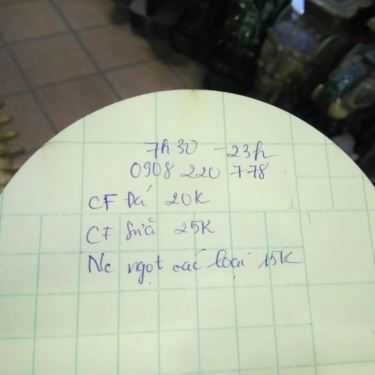 7h30 - 23h
0908 220 778
CF Đá 20K
CF Sữa 25K
Nc ngọt các loại 15K